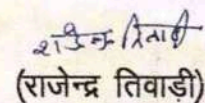 राजेन्द्र तिवाडी
(राजेन्द्र तिवाडी)